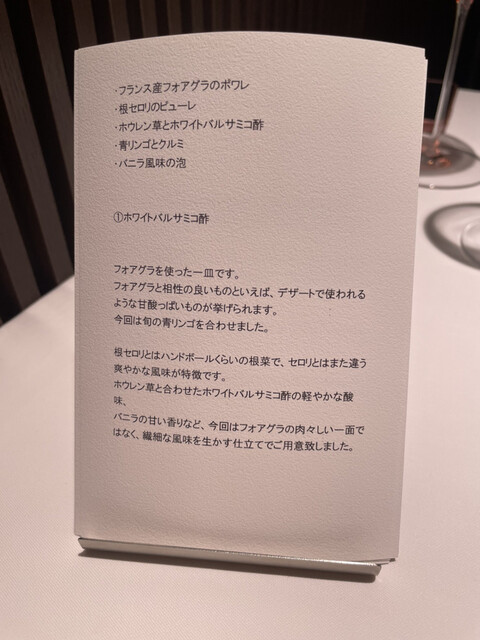 ・フランス産フォアグラのポワレ
・根セロリのピューレ
・ホウレン草とホワイトバルサミコ酢
・青リンゴとクルミ
・バニラ風味の泡
①ホワイトバルサミコ酢
フォアグラを使った一皿です。
フォアグラと相性の良いものといえば、デザートで使われる
ような甘酸っぱいものが挙げられます。
今回は旬の青リンゴを合わせました。
根セロリとはハンドボールくらいの根菜で、セロリとはまた違う
爽やかな風味が特徴です。
ホウレン草と合わせたホワイトバルサミコ酢の軽やかな酸
味、
バニラの甘い香りなど、今回はフォアグラの肉々しい一面で
はなく、繊細な風味を生かす仕立てでご用意致しました。